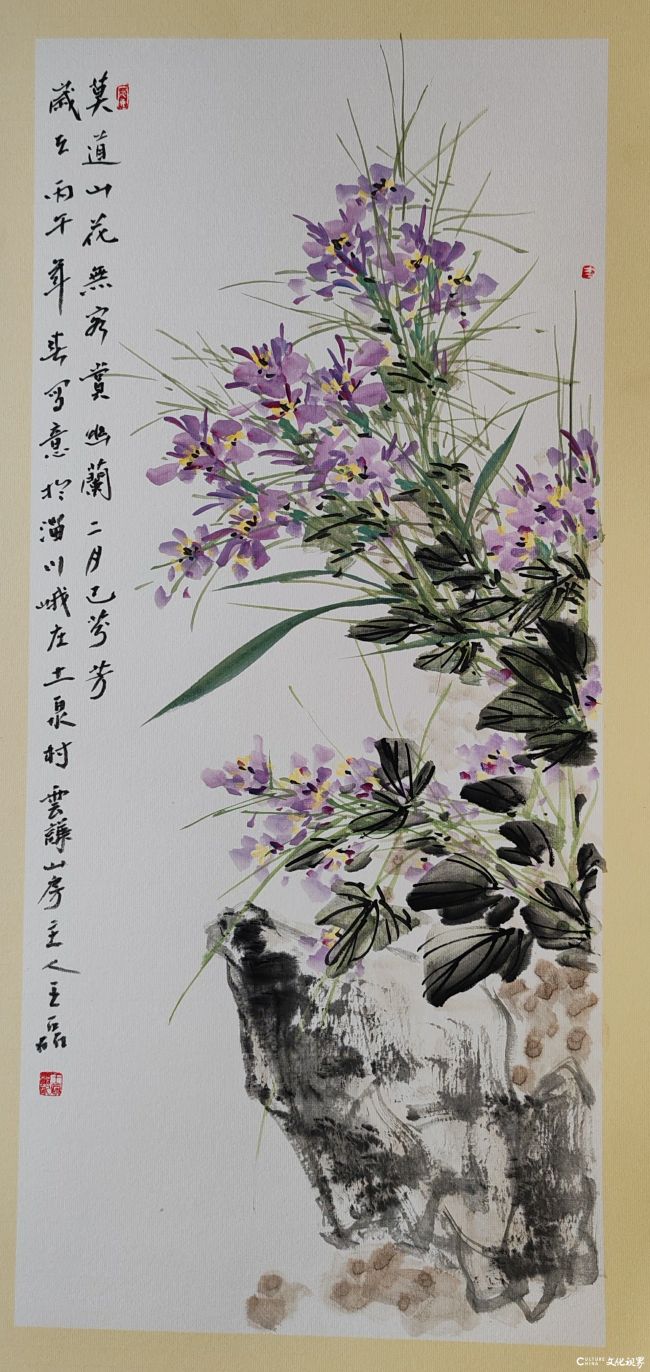 莫道山花無客賞幽蘭二月已芬芳
歲在丙午年春写意於淄川峨庄土泉村雲謙山房主人王磊
CULTURE CHINA 文化视界